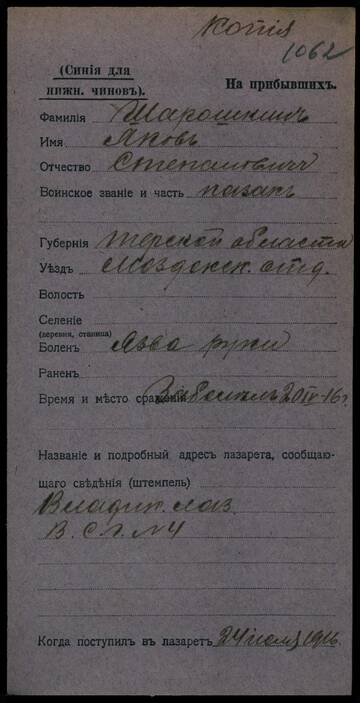 Копія
1062
(Синія для
нижн. чиновъ).
На прибывшихъ.
Фамилія
Имя Яковъ
Отчество Степановичъ
Воинское званіе и часть казакъ
Губернія Терской области
Уѣздъ Моздокск. отд.
Волость
Селеніе
(деревня, станица)
Боленъ Язва руки
Раненъ
Время и мѣсто сраженія Заболѣлъ 20 IV 16 г.
Названіе и подробный адресъ лазарета, сообщаю-
щаго свѣдѣнія (штемпель)
Владик. лаз.
В. С. Г. №4
Когда поступилъ въ лазаретъ 24 іюля 1916.